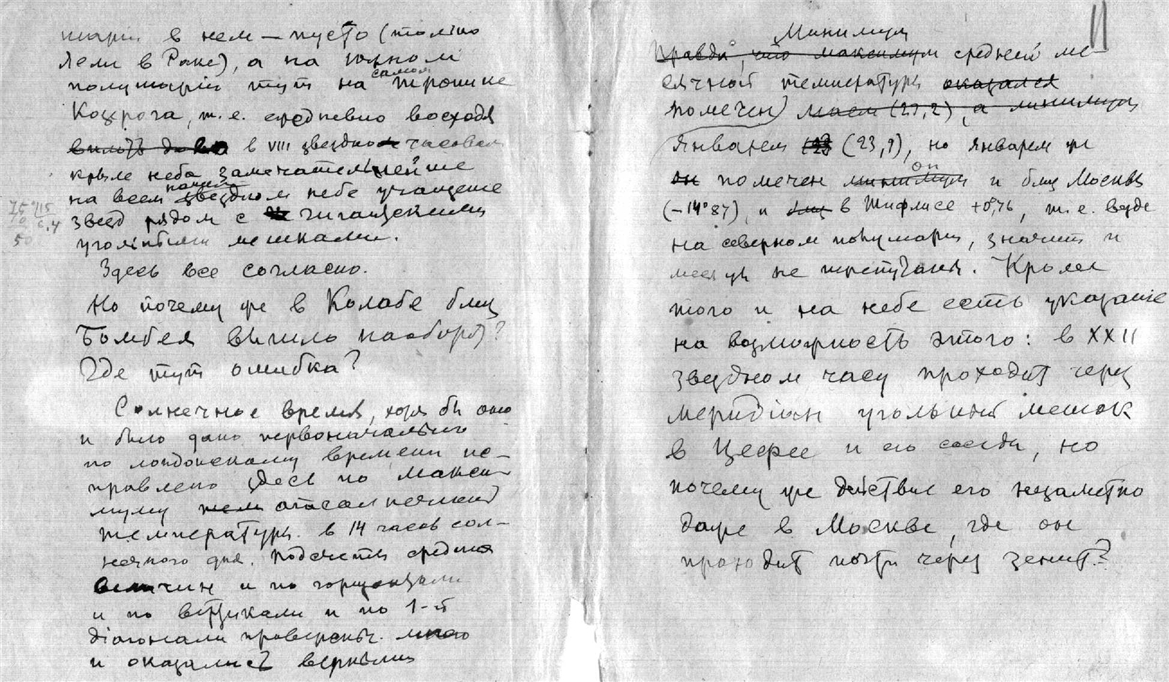 в нем — пусто (только
Ясли в Раке), а на южном
полушарии тут на самом тропике
Козерога, т.е. ежедневно восходя
вплоть до в VIII звездном часовом
крыле неба замечательнейшее
на всем ночном звездном небе учащение
звезд рядом с гигантскими
угольными мешками.
75 % 15
6,4
50
Здесь все согласно.
Но почему же в Колабе близ
Бомбея вышло наоборот?
Где тут ошибка?
Солнечное время, хотя бы оно
и было дано первоначально
по лондонскому времени ис-
правлено здесь по макси-
муму температуры в 14 часов сол-
нечного дня. Подсчеты средних
величин и по горизонтали
и по вертикали и по 1-й
діагонали проверены. много
и оказались верными
11
Минимум
Правда, что максимум средней ме-
сячной температуры оказался
помечен (27,2), а минимум
Январем (23,9), но январем же
он помечен минимум он и близ Москвы
(−14°87), и в Тифлисе +0°,76, т.е. везде
на северном полушарии, значит и
не при чем. Кроме
того и на небе есть указание
на возможность этого: в XXII
звездном часу проходит через
меридіан угольный мешок
в Цефее и его соседи, но
почему же действие его незаметно
даже в Москве, где он
проходит почти через зенит?